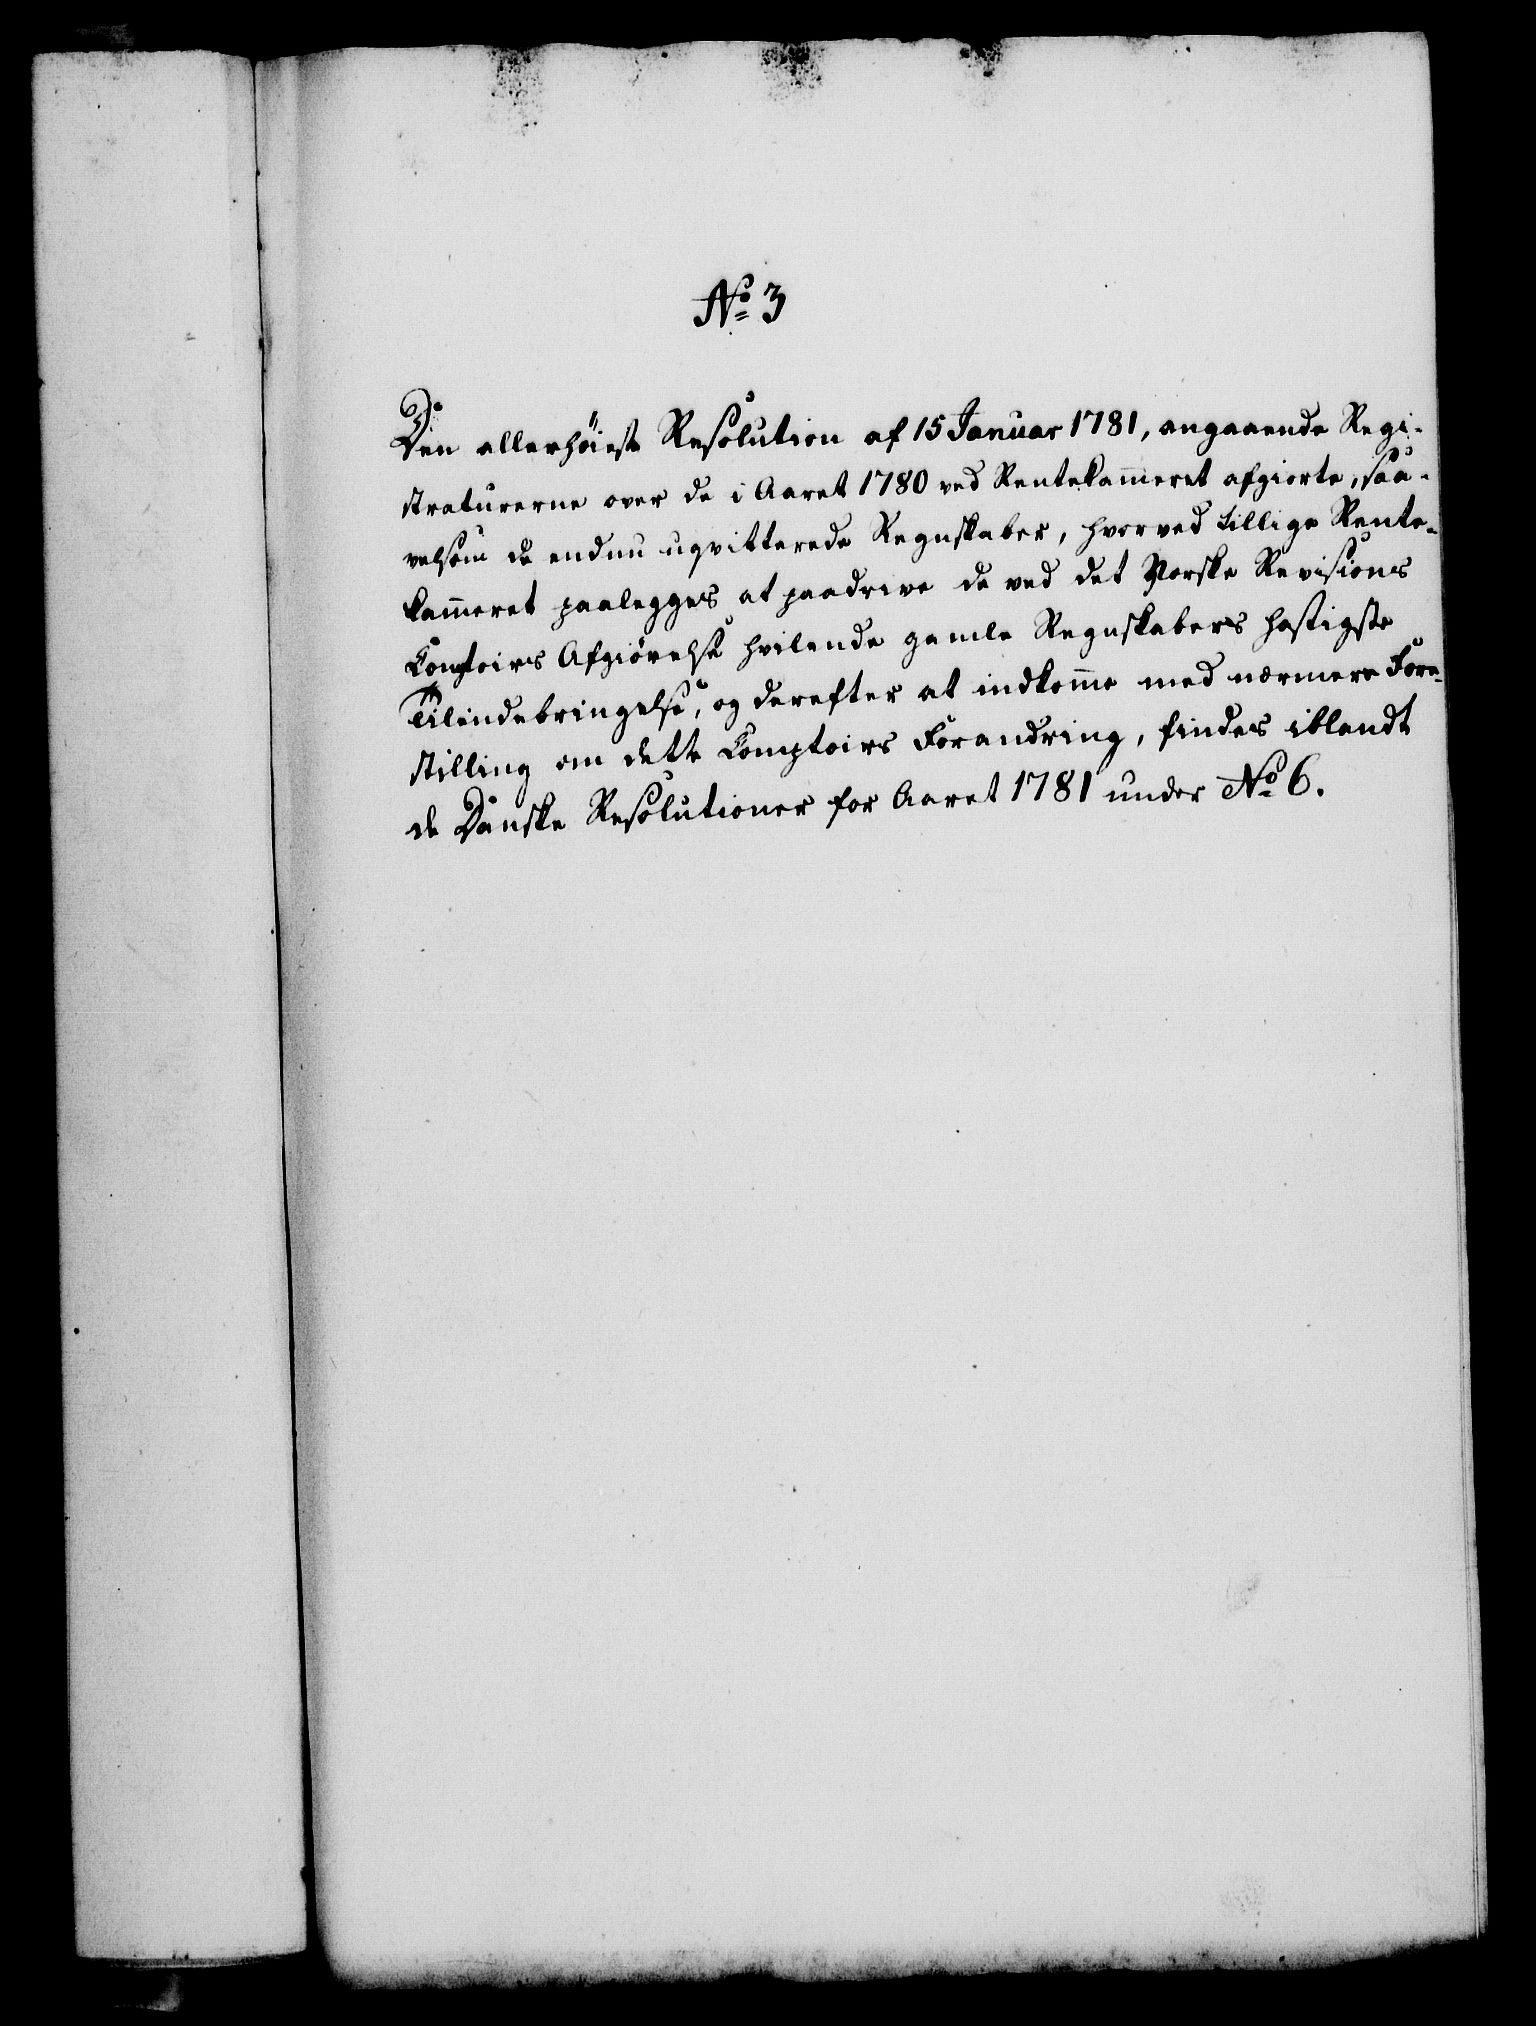 No 3
Den allerhöieste Resolution af 15 Januar 1781, angaaende Regi-
straturerne over de i Aaret 1780 ved Rentekam̄eret afgiorte, saa-
velsom de endnu uqvitterede Regnskaber, hvorved tillige Rente-
kam̄eret paalegges at paadrive de ved det Norske Revisions
Comptoirs Afgiørelse hvilende gamle Regnskabers hastigste
Tilendebringelse, og derefter at indkom̄e med nærmere Fore-
stilling om dette Comptoirs Forandring, findes iblandt
de Danske Resolutioner for Aaret 1781 under No 6.